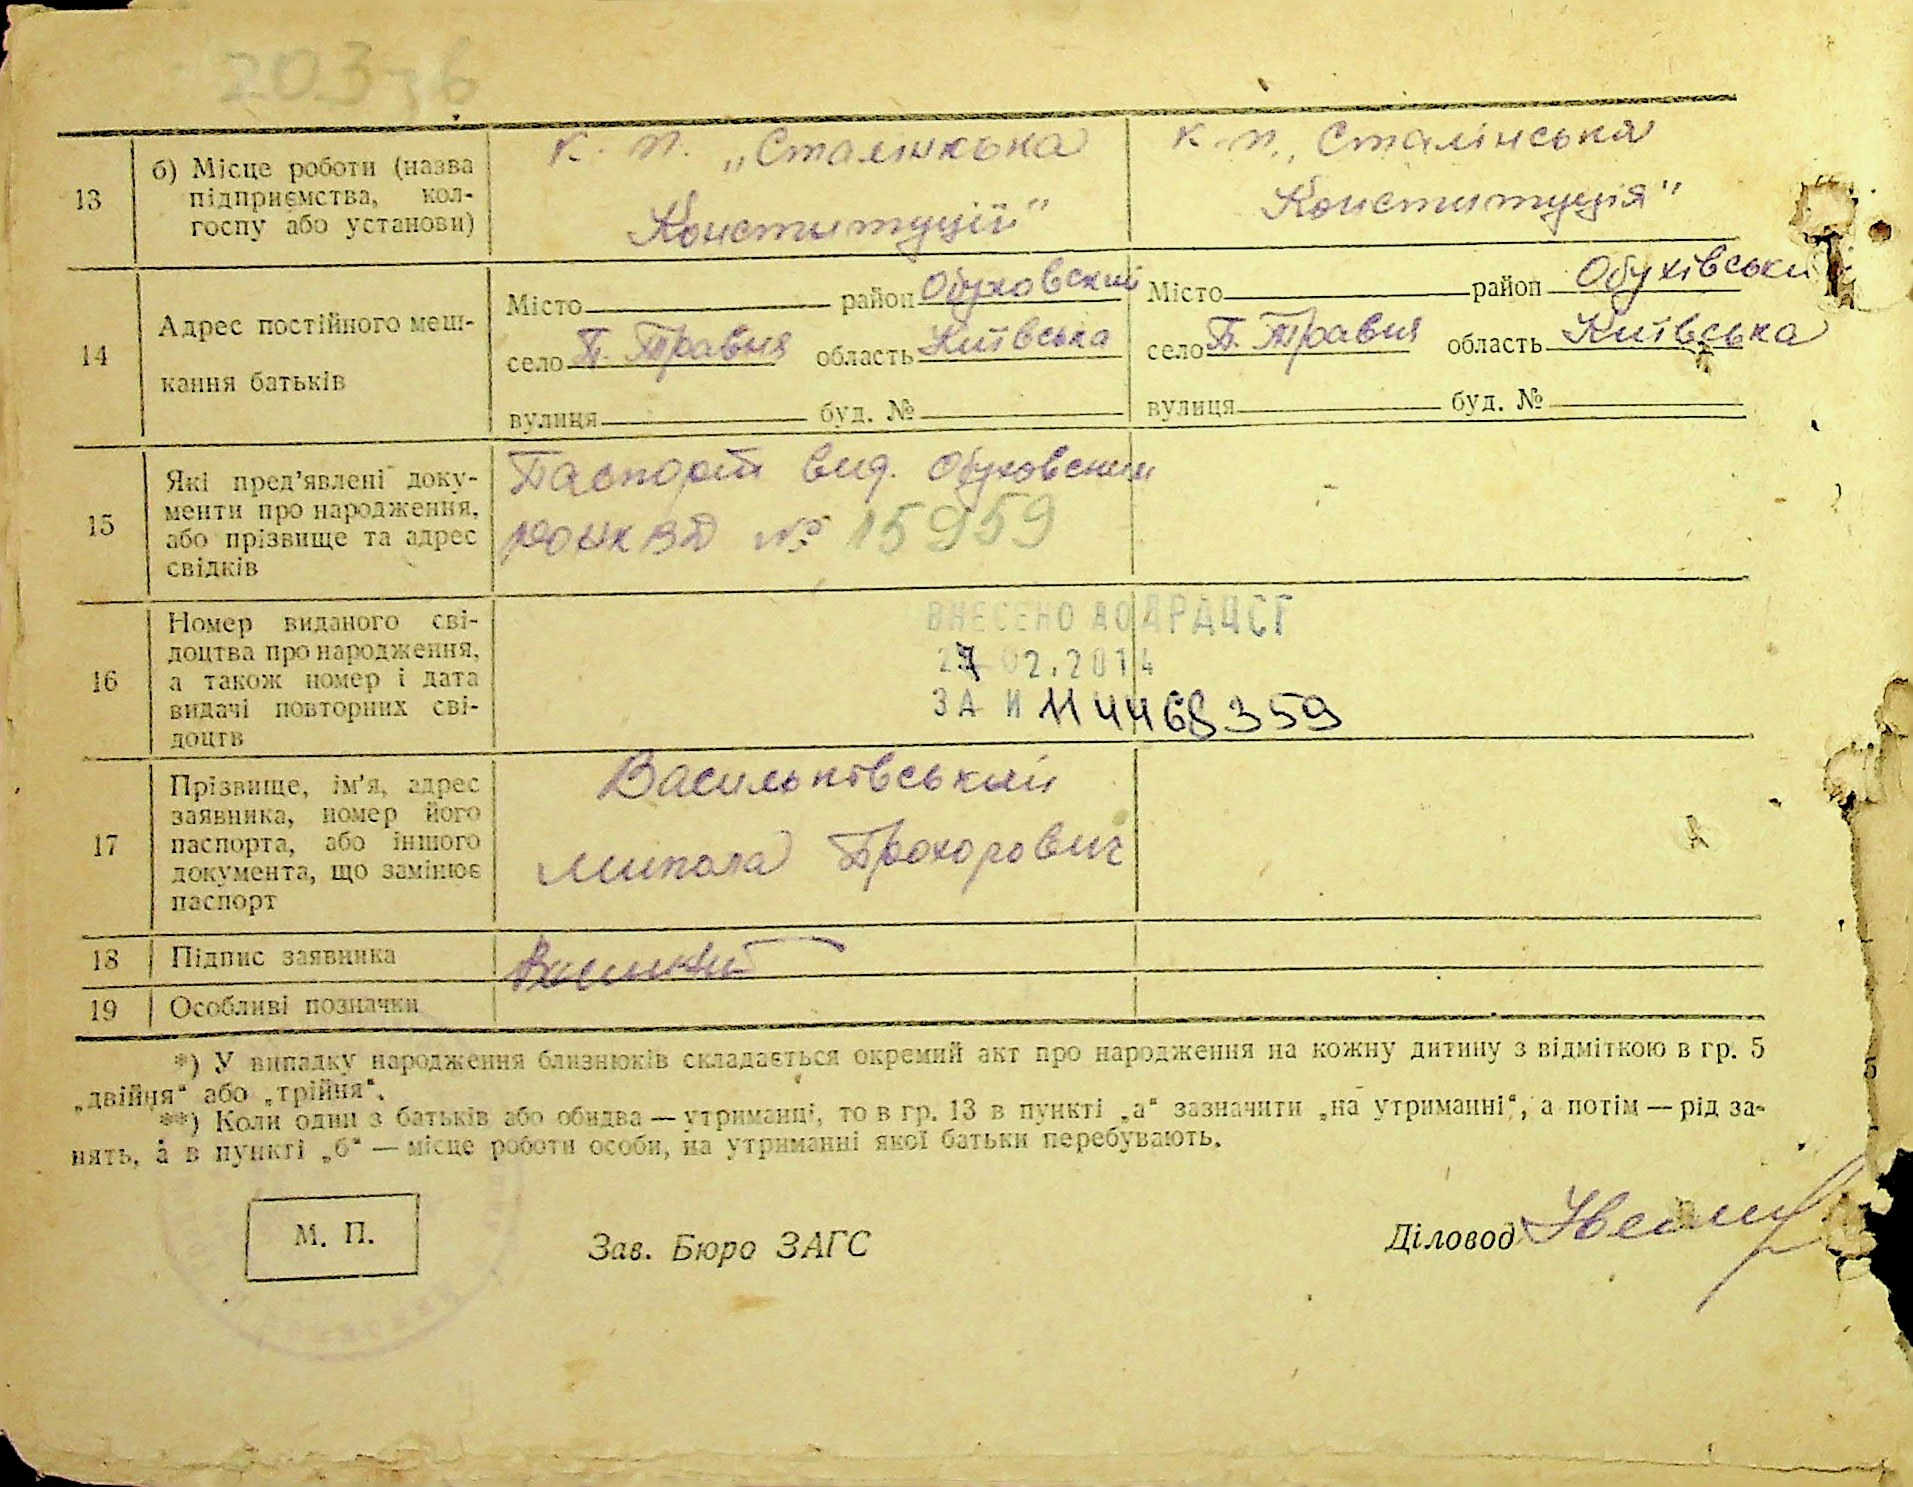 20376
13
б) Місце роботи (назва
підприємства, кол-
госпу або установи)
к. п. „Сталінська
Конституції"
к. п. „Сталінська
Конституція"
14
Адрес постійного меш-
кання батьків
Місто район Обуховский
село П. Травня область Київська
вулиця буд. №
Місто район Обухівськи
село П. Травня область Київська
вулиця буд. №
15
Які пред'явлені доку-
менти про народження,
або прізвище та адрес
свідків
Паспорт вид. Обуховским
РОНКВД № 15959
16
Номер виданого сві-
доцтва про народження,
а також номер і дата
видачі повторних сві-
доцтв
ВНЕСЕНО ДО ДРАЦСГ
27 02.2014
ЗА И 114468359
17
Прізвище, ім'я, адрес
заявника, номер його
паспорта, або іншого
документа, що замінює
паспорт
Васильківський
Микола Прохорович
18
Підпис заявника
19
Особливі позначки
*) У випадку народження близнюків складається окремий акт про народження на кожну дитину з відміткою в гр. 5
„двійця" або „трійня".
**) Коли один з батьків або обидва — утриманці, то в гр. 13 в пункті „а" зазначити „на утриманні", а потім — рід за-
нять, а в пункті „б" — місце роботи особи, на утриманні якої батьки перебувають.
М. П.
Зав. Бюро ЗАГС
Діловод